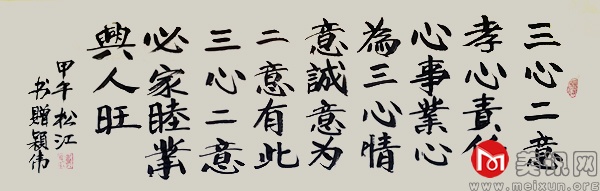 三心二意
孝心責任
心事業心
為三心情
意誠意为
二意有此
三心二意
必家睦業
興人旺
甲午松江
书贈穎伟
美讯网
www.meixun.org